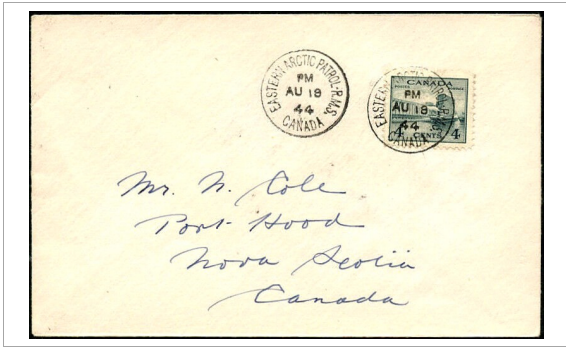 EASTERN ARCTIC PATROL-R.M.S.
PM
AU 18
44
CANADA
CANADA
EASTERN ARCTIC PATROL-R.M.S.
PM
AU 18
44
CANADA
4 CENTS 4
Mr. N. Cole
Port Hood
Nova Scotia
Canada